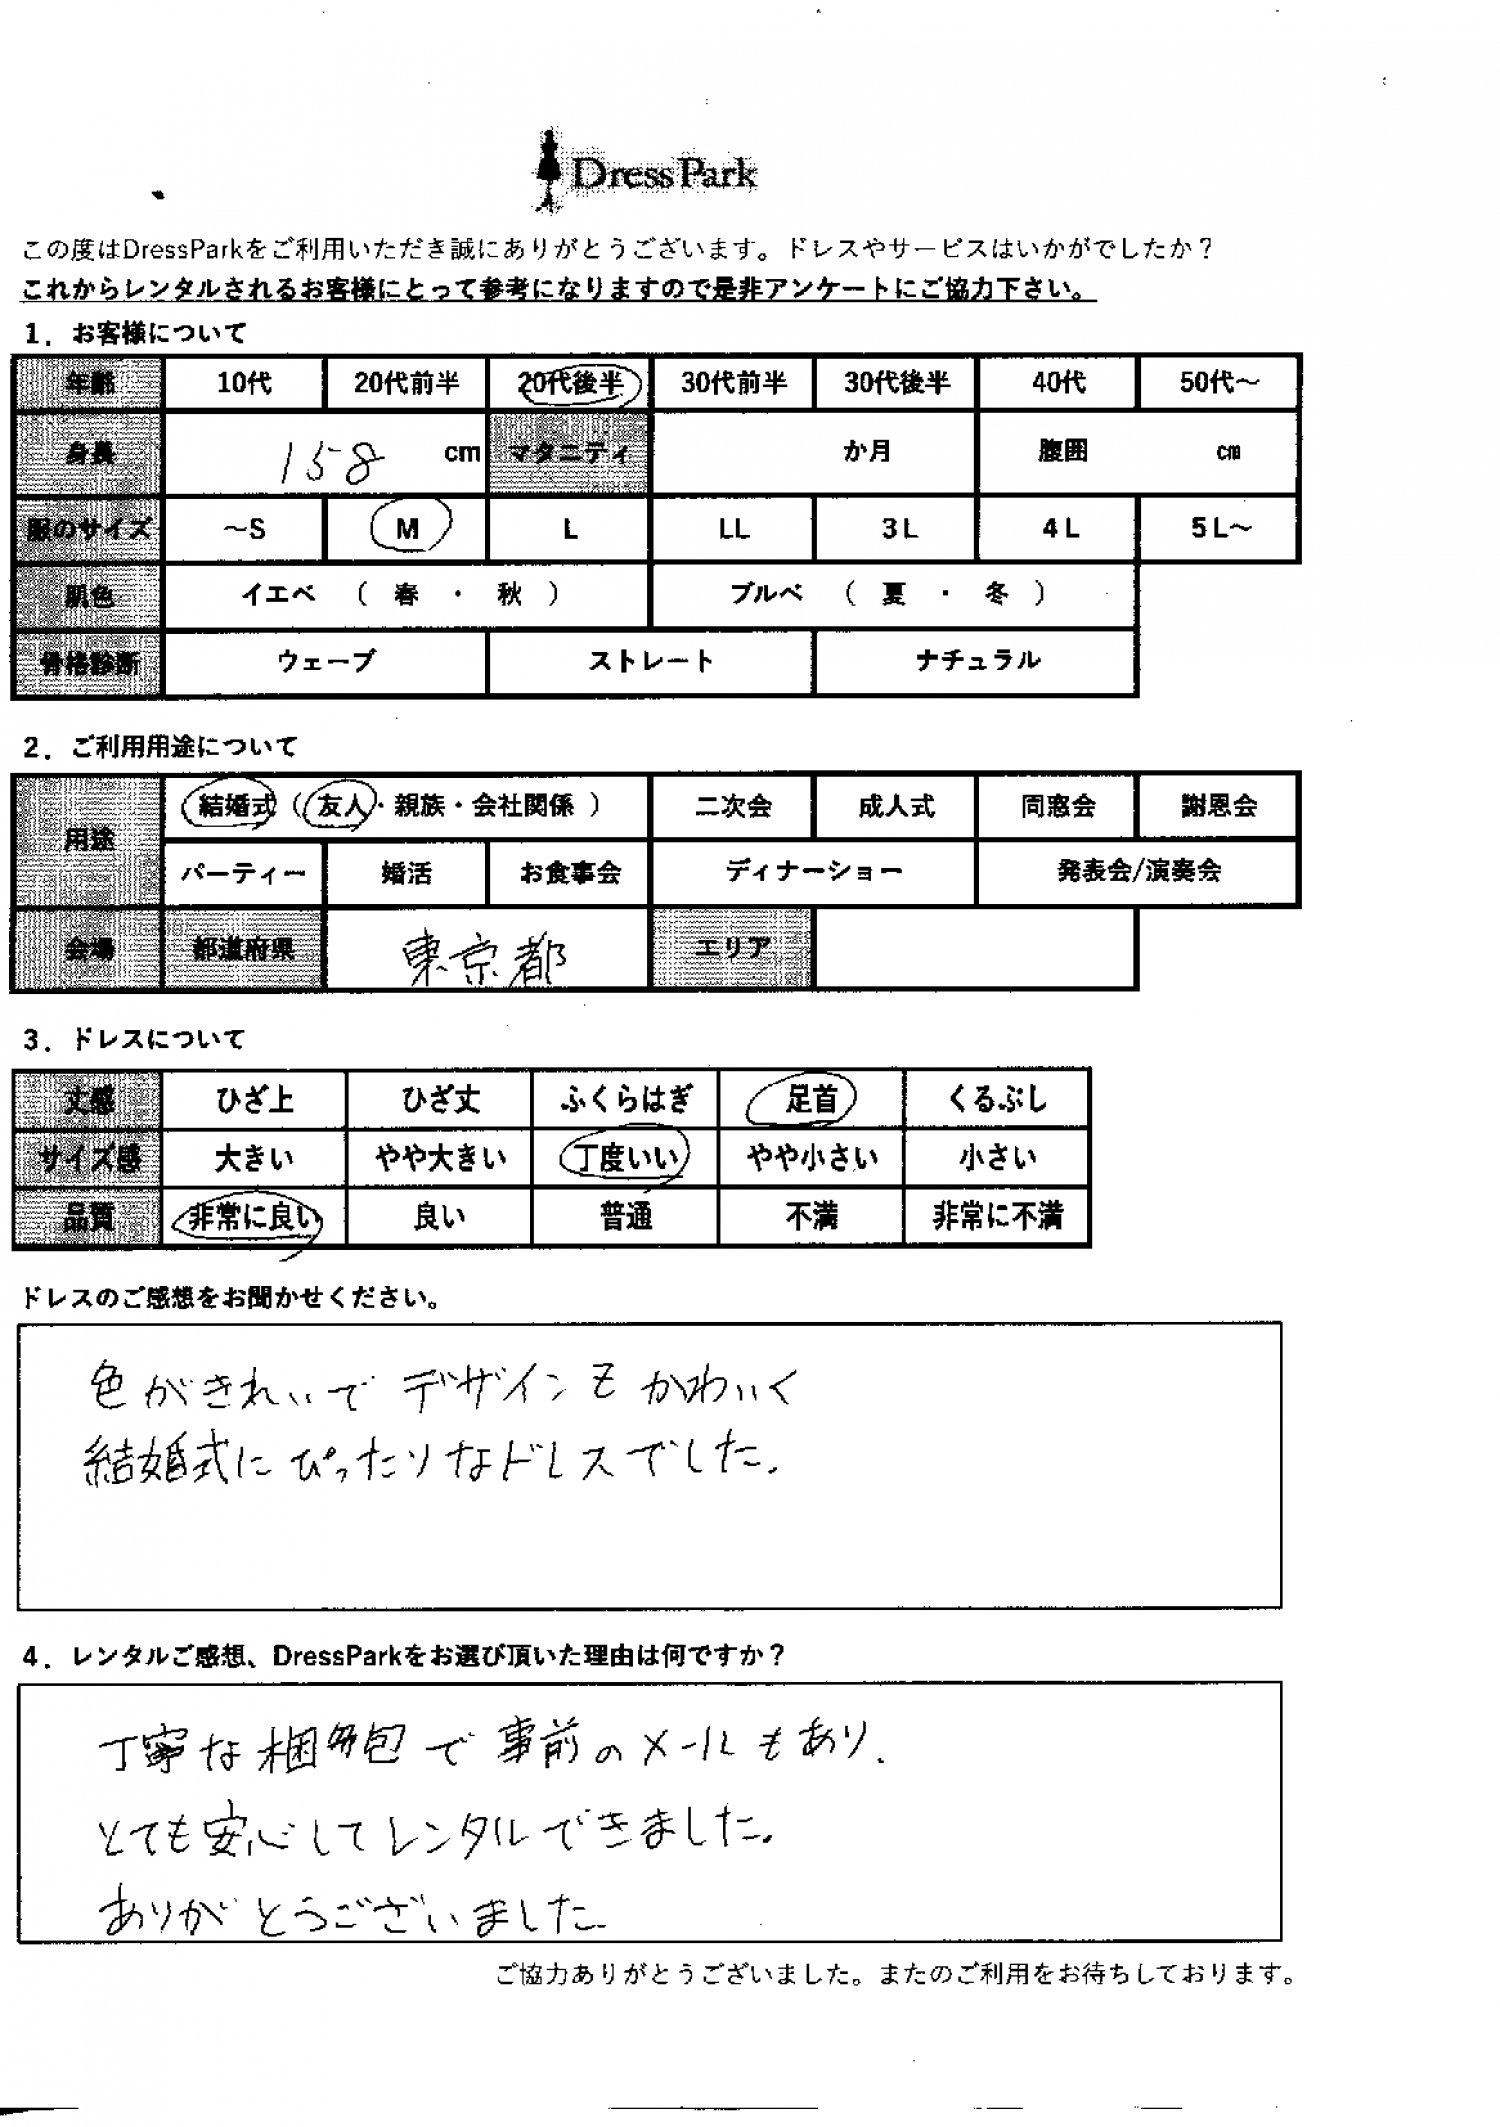 DressPark
この度はDressParkをご利用いただき誠にありがとうございます。ドレスやサービスはいかがでしたか？
これからレンタルされるお客様にとって参考になりますので是非アンケートにご協力下さい。
1．お客様について
年齢 10代 20代前半 20代後半 30代前半 30代後半 40代 50代～
身長 158 cm マタニティ か月 腹囲 cm
服のサイズ ～S M L LL 3L 4L 5L～
肌色 イエベ （ 春 ・ 秋 ） ブルベ （ 夏 ・ 冬 ）
骨格診断 ウェーブ ストレート ナチュラル
2．ご利用用途について
用途 結婚式（友人・親族・会社関係 ） 二次会 成人式 同窓会 謝恩会
パーティー 婚活 お食事会 ディナーショー 発表会/演奏会
会場 都道府県 東京都 エリア
3．ドレスについて
丈感 ひざ上 ひざ丈 ふくらはぎ 足首 くるぶし
サイズ感 大きい やや大きい 丁度いい やや小さい 小さい
品質 非常に良い 良い 普通 不満 非常に不満
ドレスのご感想をお聞かせください。
色がきれいで デザインもかわいく
結婚式にぴったりなドレスでした。
4．レンタルご感想、DressParkをお選び頂いた理由は何ですか？
丁寧な梱包で事前のメールもあり、
とても安心してレンタルできました。
ありがとうございました
ご協力ありがとうございました。またのご利用をお待ちしております。